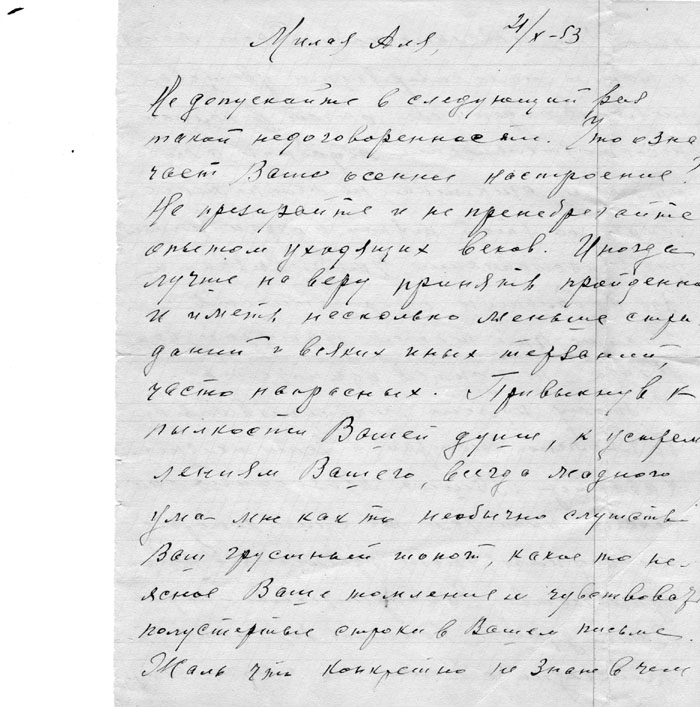 Милая Аля, 21/X-53
Не допускайте в следующий раз
такой недоговоренности. Что озна
чает Ваше осеннее настроение?
Не презирайте и не пренебрегайте
опытом уходящих веков. Иногда
лучше на веру принять пройденно
и иметь несколько меньше стра
даний и всяких иных терзаний,
часто напрасных. Привыкнув к
пылкости Вашей души, к устрем
лениям Вашего, всегда жадного
ума мне как то необычно слушать
Ваш грустный шопот, какое то не-
ясное Ваше томление и чувствовать
полустертые строки в Вашем письме.
Жаль что конкретно не знаю в чем